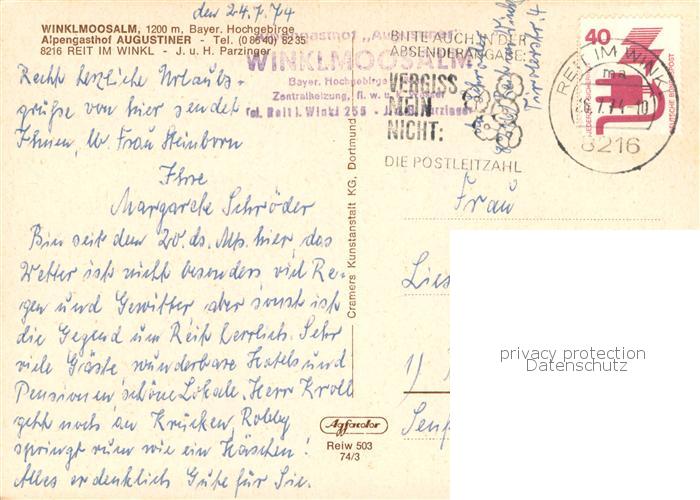 den 24.7.74
WINKLMOOSALM, 1200 m, Bayer. Hochgebirge
Alpengasthof AUGUSTINER - Tel. (0 86 40) 82 35
8216 REIT IM WINKL - J. u. H. Parzinger
Alpengasthof „Augustiner"
WINKLMOOSALM
Bayer. Hochgebirge
Zentralheizung, fl. w. u. k.
Tel. Reit i. Winkl 255 - J. Parzinger
Recht herzliche Urlaubs-
grüße von hier sendet
Ihnen, lb. Frau Steinborn
Ihre
Margarete Schröder
Bin seit dem 20. ds. Mts. hier, das
Wetter ist nicht besonders viel Re-
gen und Gewitter aber sonst ist
die Gegend um Reit herrlich. Sehr
viele Gäste wunderbare Hotels und
Pensionen schöne Lokale. Herr Kroll
geht noch an Krücken, Robby
springt rum wie ein Häschen!
Alles erdenklich Gute für Sie.
Cramers Kunstanstalt KG, Dortmund
BITTE AUCH IN DER
ABSENDERANGABE:
VERGISS
MEIN
NICHT:
DIE POSTLEITZAHL
REIT IM WINKL
ma
26.7.74-10
8216
40
DEUTSCHE BUNDESPOST
Frau
Lies
1)
Senf
privacy protection
Datenschutz
Agfacolor
Reiw 503
74/3